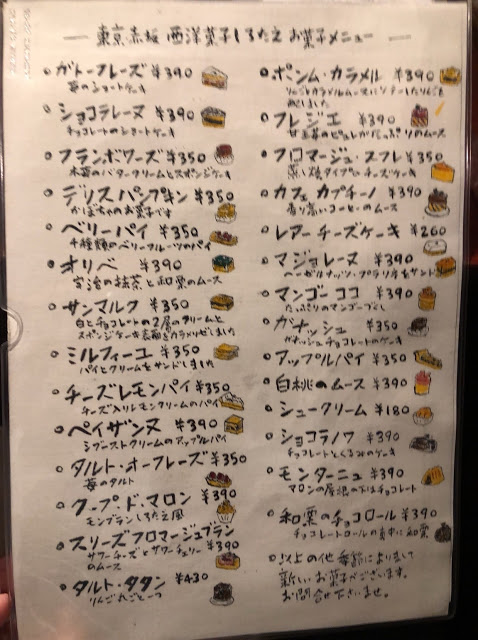 東京赤坂 西洋菓子しろたえ お菓子メニュー
ガトーフレーズ ¥390
苺のショートケーキ
ショコラレーヌ ¥390
チョコレートのショートケーキ
フランボワーズ ¥350
木苺のバタークリームとスポンジケーキ
デリスパンプキン ¥350
かぼちゃのお菓子です
ベリーパイ ¥350
4種類のベリーフルーツのパイ
オリベ ¥390
宇治の抹茶と和栗のムース
サンマルク ¥350
白とチョコレートの2層のクリームと
スポンジケーキ表面をカラメリゼしました
ミルフィーユ ¥350
パイとクリームをサンドしました
チーズレモンパイ ¥350
チーズ入りレモンクリームのパイ
ペイザンヌ ¥390
シブーストクリームのアップルパイ
タルト・オ・フレーズ ¥350
苺のタルト
クープ・ド・マロン ¥390
モンブランしろたえ風
スリーズフロマージュブラン
サワーチーズとサワーチェリー
のムース ¥390
タルト・タタン ¥430
りんごれごと一つ
ポンム・カラメル ¥390
りんごとカラメルムースにソテーしたりんごを
フレジエ ¥390
甘王苺のピュレがたっぷりのムース
フロマージュ・スフレ ¥350
蒸し焼タイプのチーズケーキ
カフェカプチーノ ¥390
香り高いコーヒーのムース
レアーチーズケーキ ¥260
マジョレーヌ ¥390
ヘーゼルナッツ・プラリネをサンド
マンゴーココ ¥390
たっぷりのマンゴーづくし
ガナッシュ ¥350
ガナッシュチョコレートのケーキ
アップルパイ ¥350
白桃のムース ¥390
シュークリーム ¥180
ショコラノワ ¥390
チョコレートとくるみのケーキ
モンターニュ ¥390
マロンの屋根の下はチョコレート
和栗のチョコロール ¥390
チョコレートロールの真中に和栗
以上の他季節によりまして
新しいお菓子がございます。
お問合せ下さいませ。